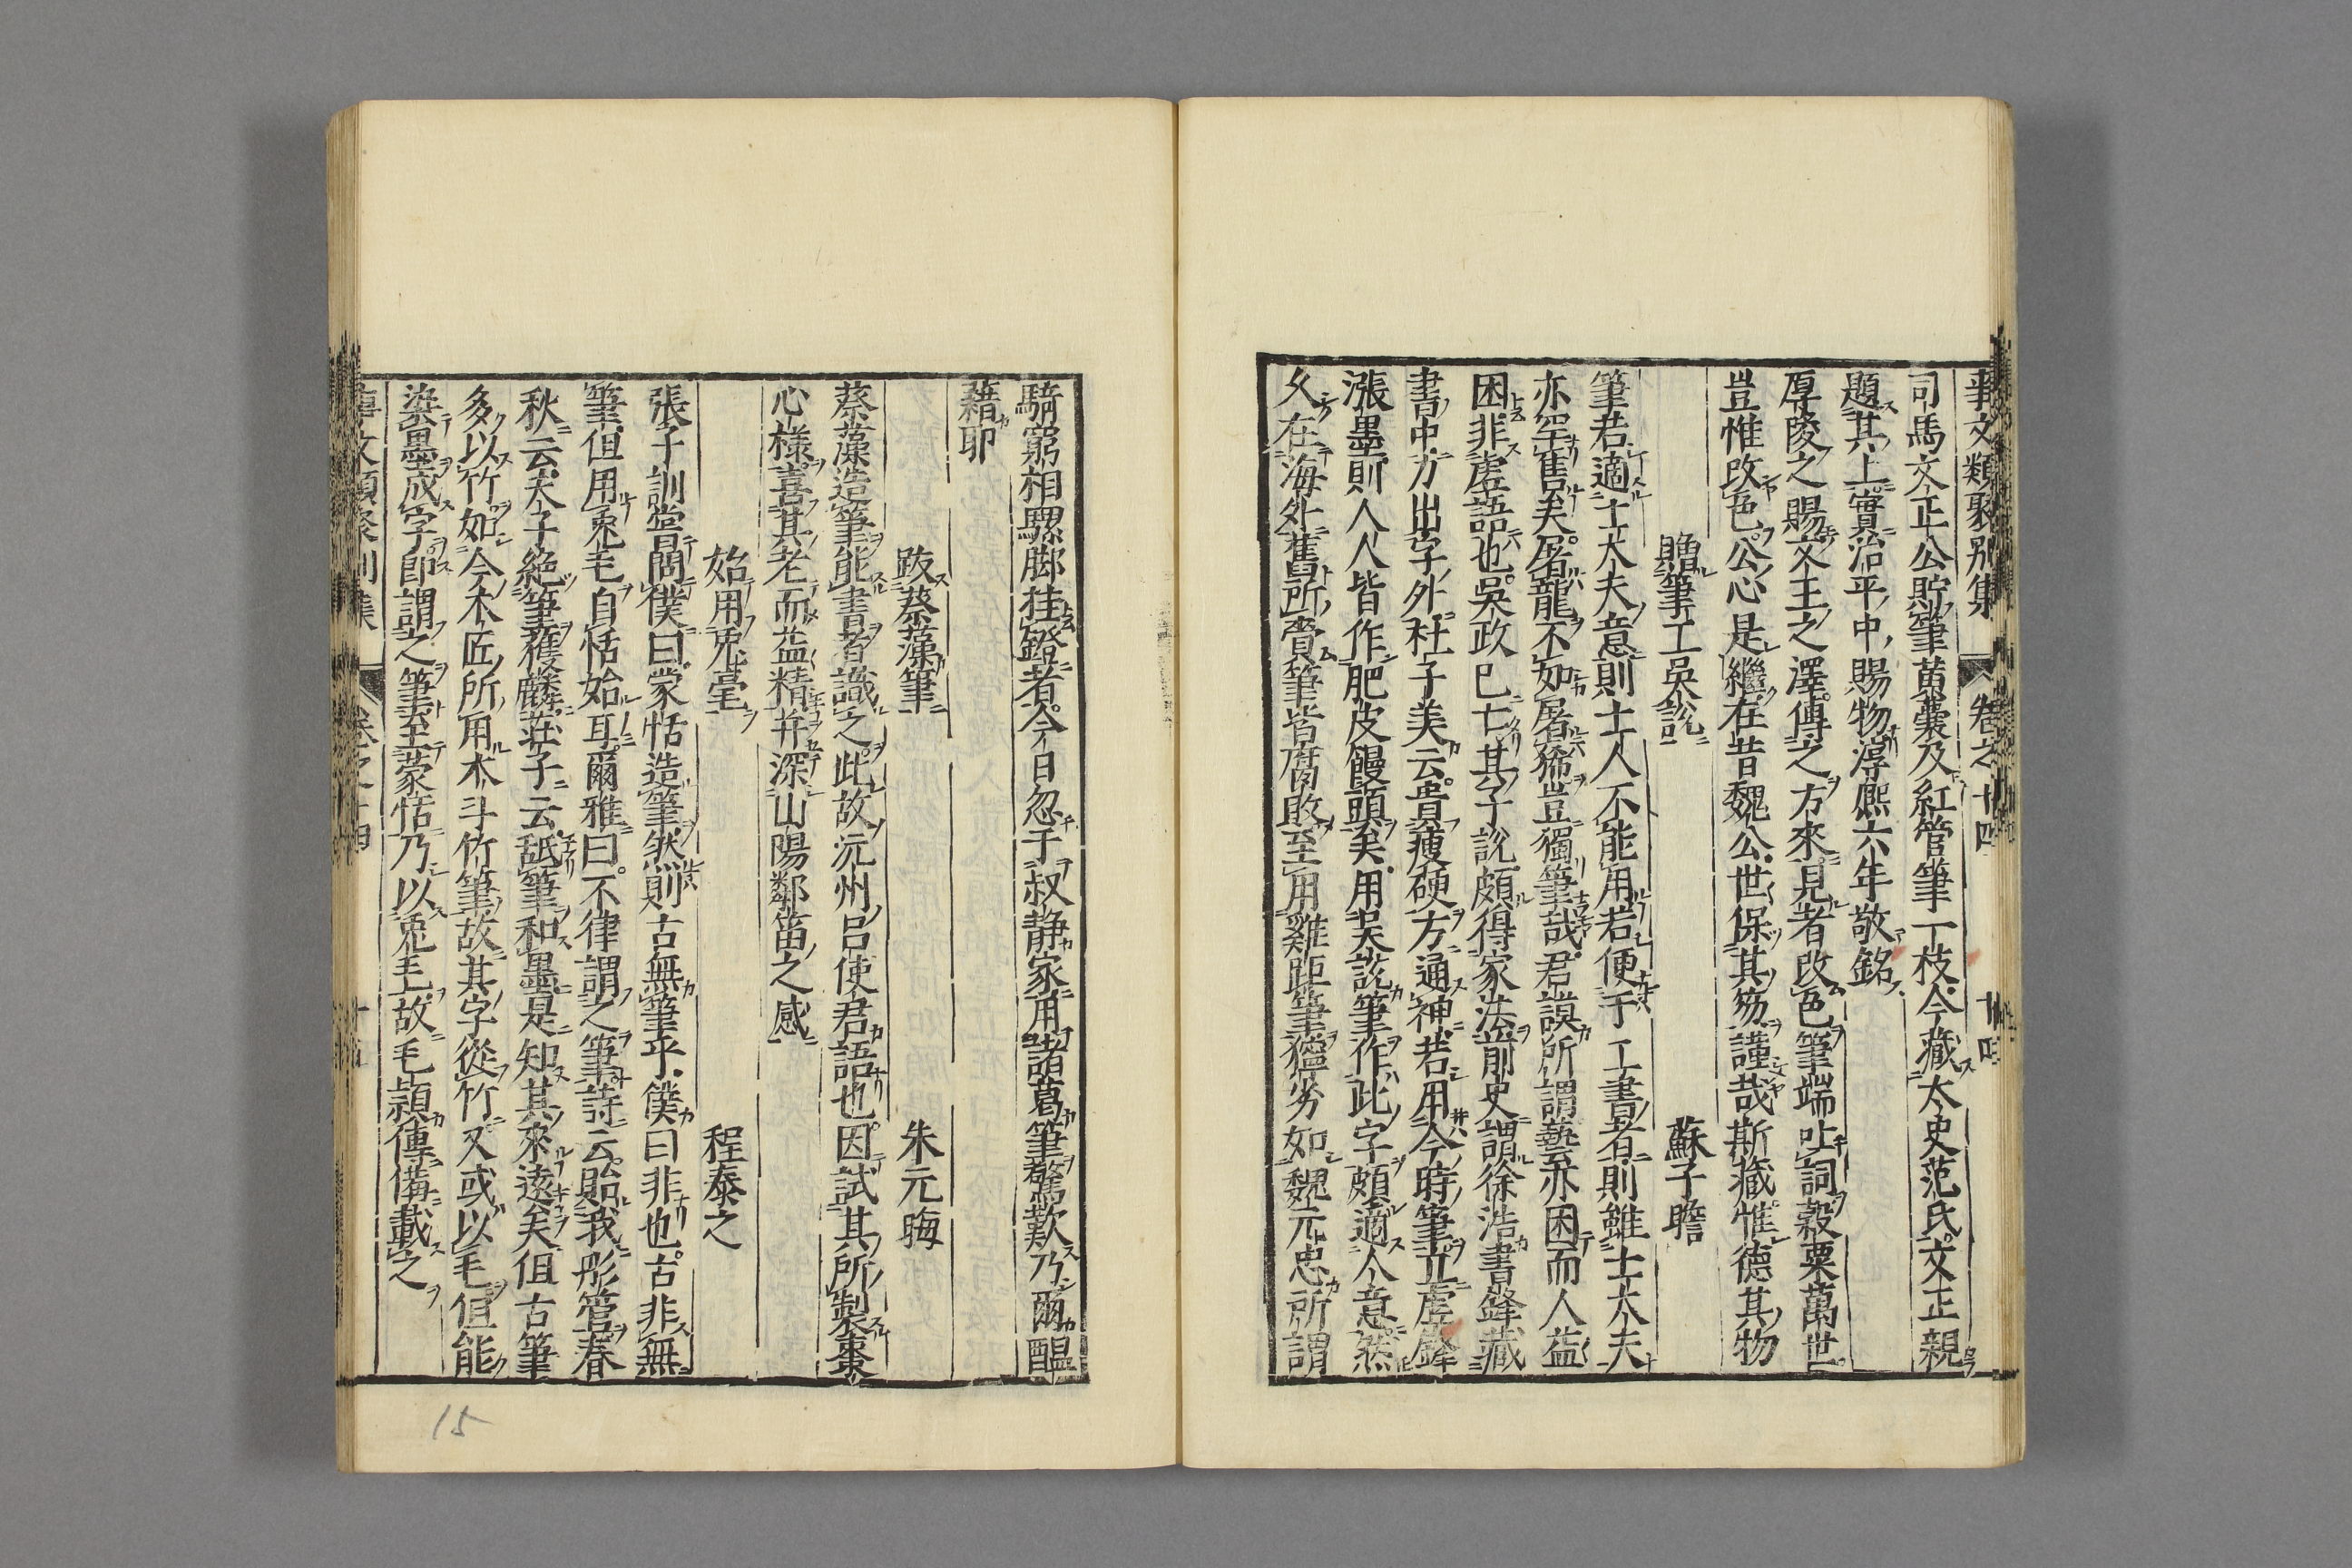 事文類聚別集 卷之十四 廿四
司馬文正公貯筆黃囊及紅管筆一枝今藏太史范氏文正親
題其上實治平中賜物淳熈六年敬銘
厚陵之賜文王之澤傳之方來見者改色筆端吐詞穀粟萬世
豈惟改色公心是繼在昔魏公世保其笏謹哉斯藏惟德其物
贈筆工吳說 蘇子瞻
筆若適士大夫意則士人不能用若便于工書者則雖士大夫
亦罕售矣屠龍不如屠豨豈獨筆哉君謨所謂藝亦困而人益
困非虛語也吳政已亡其子說頗得家法前史謂徐浩書鋒藏
書中力出字外杜子美云貴瘦硬方通神若用今時筆立虛鋒
漲墨則人人皆作肥皮饅頭矣用吳說筆作此字頗適人意然
久在海外舊所賫筆皆腐敗至用雞距筆獰劣如魏元忠所謂
騎窮相騾脚挂鐙者今日忽于叔静家用諸葛筆驚歎乃爾醞
藉耶
跋蔡藻筆 朱元晦
蔡藻造筆能書者識之此故沅州呂使君語也因試其所製棗
心様喜其老而益精并深山陽鄰笛之感
始用兎毫 程泰之
張子訓嘗問僕曰蒙恬造筆然則古無筆乎僕曰非也古非無
筆但用兎毛自恬始耳爾雅曰不律謂之筆詩云貽我彤管春
秋云夫子絶筆獲麟莊子云舐筆和墨是知其來遠矣但古筆
多以竹如今木匠所用木斗竹筆故其字從竹又或以毛但能
染墨成字即謂之筆至蒙恬乃以兎毛故毛頴傳備載之
卷之十四
15